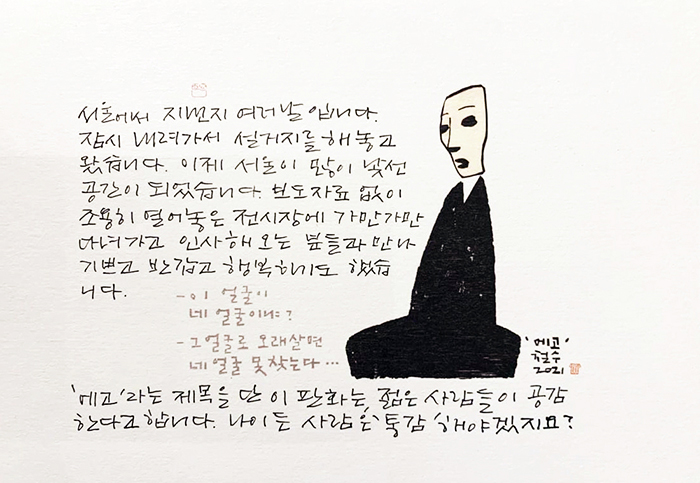 서울에서 지낸지 여러날 입니다.
잠시 내려가서 설거지를 해놓고
왔습니다. 이제 서울이 많이 낯선
공간이 되었습니다. 보도자료 없이
조용히 열어놓은 전시장에 가만가만
다녀가고 인사해 오는 벗들과 만나
기쁘고 반갑고 행복하기도 했습
니다.
- 이 얼굴이
네 얼굴이냐?
- 그얼굴로 오래살면
네 얼굴 못찾는다…
'에고'
철수
2021
'에고'라는 제목을 단 이 판화는, 젊은 사람들이 공감
한다고 합니다. 나이든 사람은 '통감'해야겠지요?